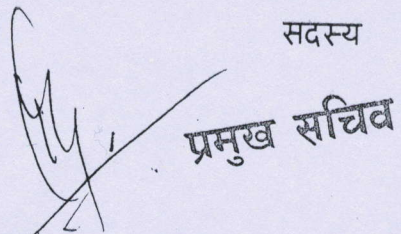 सदस्य
प्रमुख सचिव